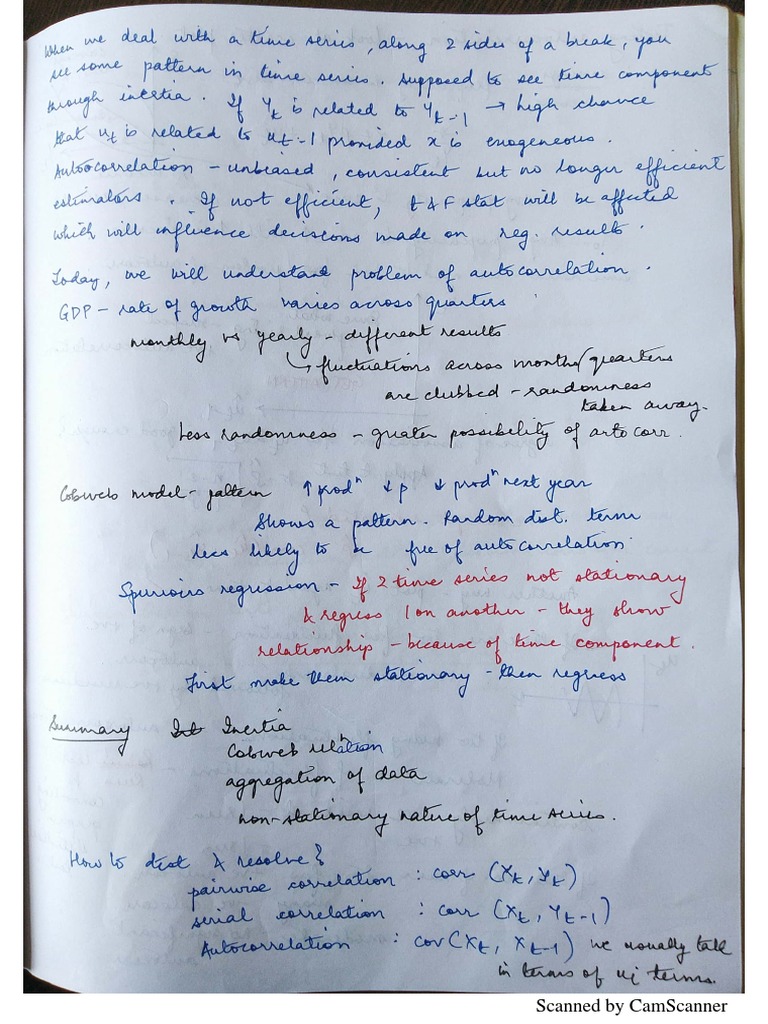 When we deal with a time series, along 2 sides of a break, you
see some pattern in time series. Supposed to see time component
through inertia. If Yt is related to Yt-1 → high chance
that ut is related to ut-1 provided x is exogeneous.
Autoocorrelation - unbiased, consistent but no longer efficient
estimators. If not efficient, t & F stat will be affected
which will influence decisions made on reg. results.
Today, we will understand problem of autocorrelation.
GDP - rate of growth varies across quarters
monthly vs yearly - different results
↳ fluctuations across months/quarters
are clubbed - randomness
taken away.
Less randomness - greater possibility of autocorr.
Cobweb model - pattern ↑ prodn ↓ p ↓ prodn next year
Shows a pattern. Random dist. term
less likely to be free of autocorrelation.
Spurioirs regression - If 2 time series not stationary
& regress 1 on another - they show
relationship - because of time component.
First make them stationary - then regress
Summary Inertia
Cobweb relation
aggregation of data
non-stationary nature of time series.
How to & resolve?
pairwise correlation : corr (Xt, Yt)
serial correlation : corr (Xt, Yt-1)
Autocorrelation : cov (Xt, Xt-1) we usually talk
in terms of ui terms.
Scanned by CamScanner